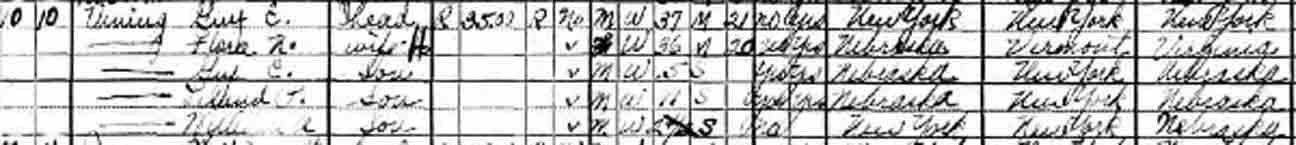 10 10 Vining Guy C. Head R 35.00 R No M W 37 M 21 no yes New York New York New York
—— Flora N. wife H v W 36 M 20 Nebraska Vermont Virginia
—— Guy C. Son v M W S Nebraska New York Nebraska
—— Son v M W 11 S Nebraska New York Nebraska
—— Son v M W S no New York New York Nebraska